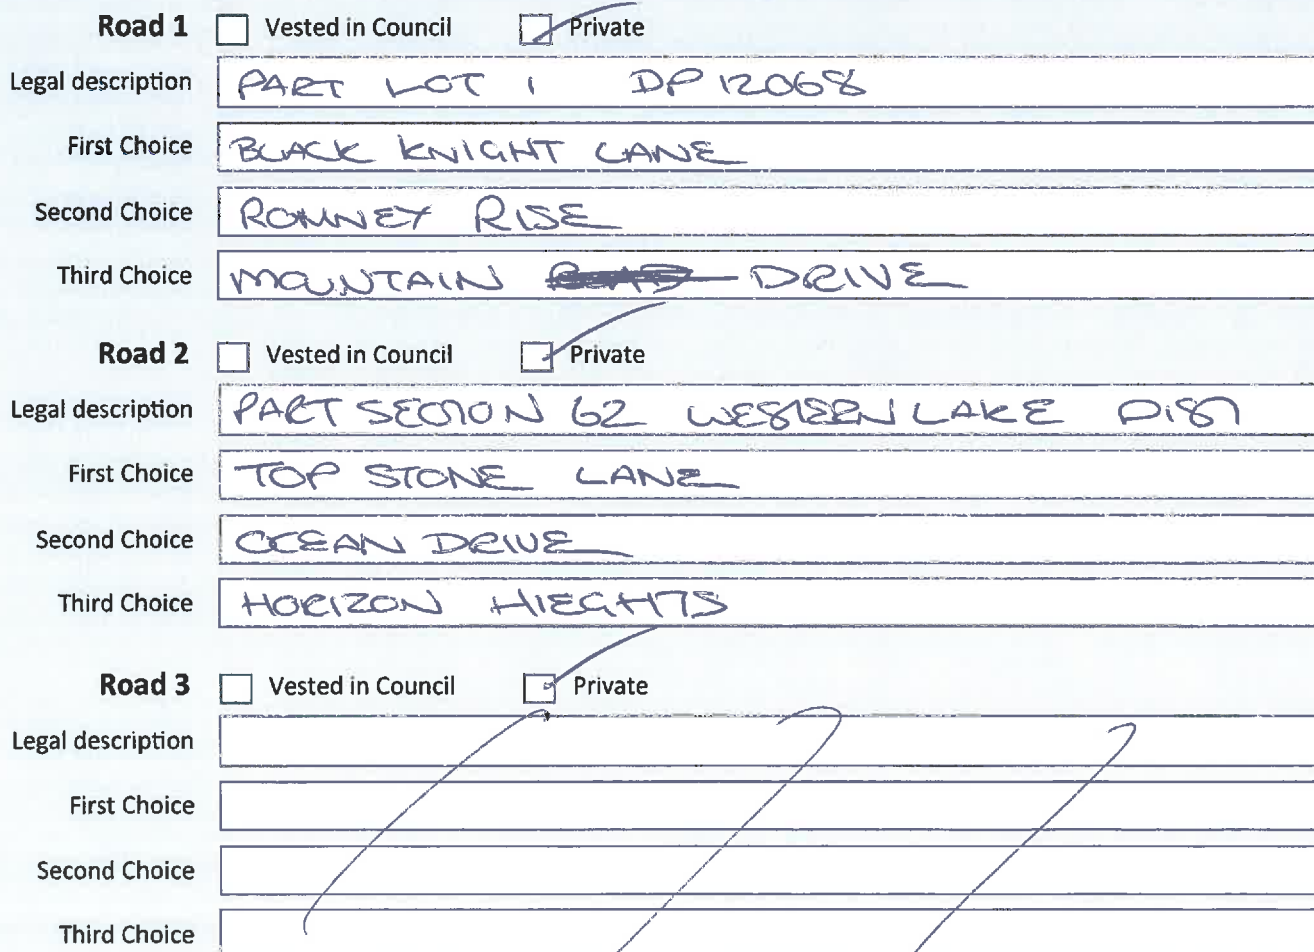 Road 1 Vested in Council Private
Legal description PART LOT 1 DP 12068
First Choice BLACK KNIGHT LANE
Second Choice ROMNEY RISE
Third Choice MOUNTAIN DRIVE
Road 2 Vested in Council Private
Legal description PART SECTION 62 WESTERN LAKE DIST
First Choice TOP STONE LANE
Second Choice OCEAN DRIVE
Third Choice HORIZON HIEGHTS
Road 3 Vested in Council Private
Legal description
First Choice
Second Choice
Third Choice